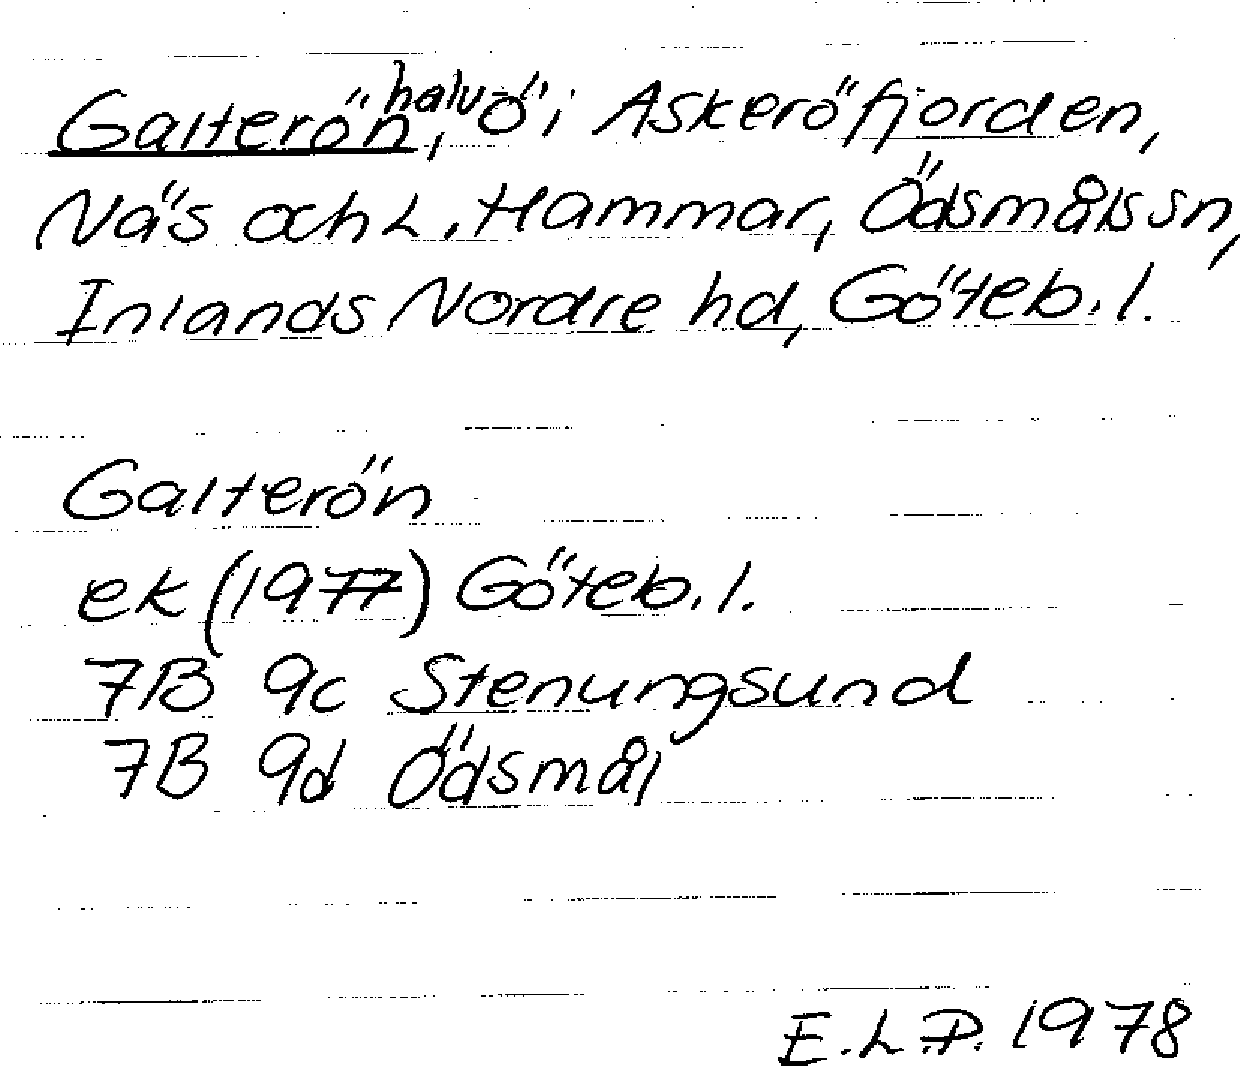 Galterön, halvö i Askeröfjorden,
Näs och L. Hammar, Ödsmåls sn,
Inlands Nordre hd, Göteb. l.
Galterön
ek (1977) Göteb. l.
7B 9c Stenungsund
7B 9d Ödsmål
E.L.P. 1978